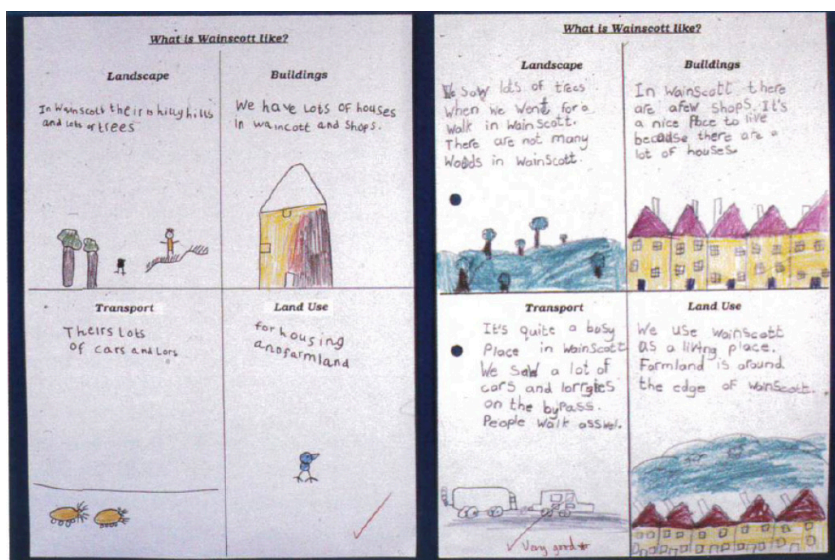 What is Wainscott like?
Landscape
In Wainscott their is hilly hills
and lots of trees
Buildings
We have lots of houses
in waincott and shops.
Transport
Theirs lots
of cars and Lors
Land Use
for housing
and farmland
What is Wainscott like?
Landscape
We saw lots of trees
when we went for a
walk in Wainscott.
There are not many
Woods in Wainscott.
Buildings
In Wainscott there
are a few shops. It's
a nice place to live
because there are a
lot of houses.
Transport
It's quite a busy
Place in Wainscott
We saw a lot of
cars and lorrgies
on the bypass.
People walk asswel.
Very good
Land Use
We use Wainscott
as a living place.
Farmland is around
the edge of Wainscott.